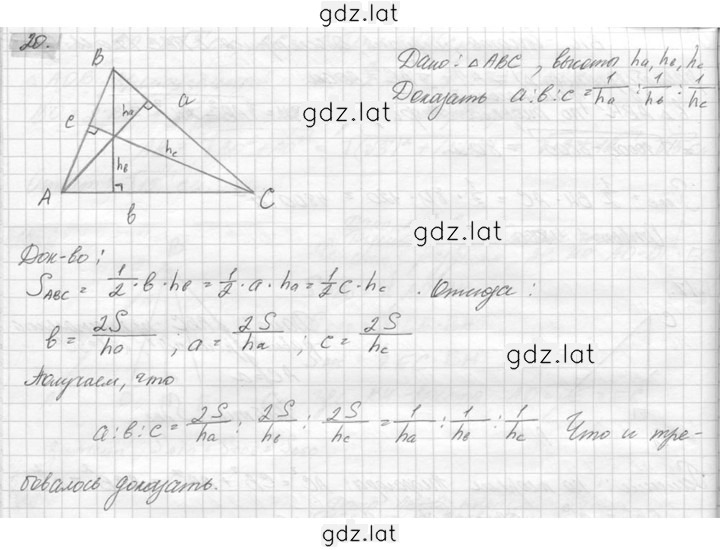 gdz.lat
20.
B
a
hₐ
c
h_c
h_в
A
в
C
Дано: △ABC, высоты hₐ, h_в, h_c
Доказать a:в:c = 1/hₐ : 1/h_в : 1/h_c
gdz.lat
gdz.lat
Док-во:
S_ABC = 1/2 · в · h_в = 1/2 · a · hₐ = 1/2 c · h_c . Отсюда:
в = 2S/h_в ; a = 2S/hₐ ; c = 2S/h_c
gdz.lat
Получаем, что
a:в:c = 2S/hₐ : 2S/h_в : 2S/h_c = 1/hₐ : 1/h_в : 1/h_c Что и тре-
бовалось доказать.
gdz.lat